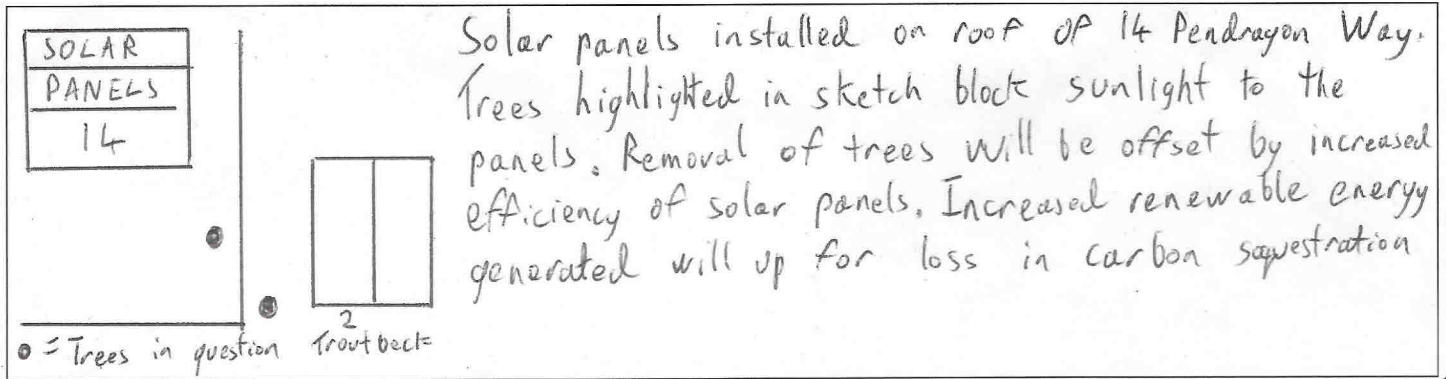 SOLAR
PANELS
14
2
Troutbeck
= Trees in question
Solar panels installed on roof of 14 Pendragon Way.
Trees highlighted in sketch block sunlight to the
panels. Removal of trees will be offset by increased
efficiency of solar panels. Increased renewable energy
generated will up for loss in carbon sequestration